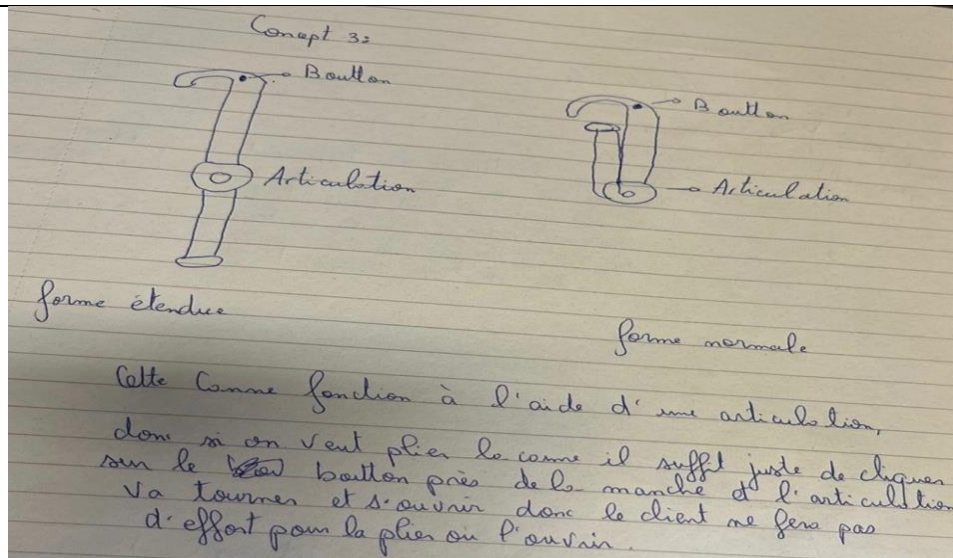 Concept 3:
Boutton
Boutton
Articulation
Articulation
forme étendue
forme normale
Cette Canne fonction à l'aide d'une articulation,
donc si on veut plier la canne il suffit juste de cliquer
sur le boutton près de la manche et l'articulation
va tourner et s'ouvrir donc le client ne fera pas
d'effort pour la plier ou l'ouvrir.